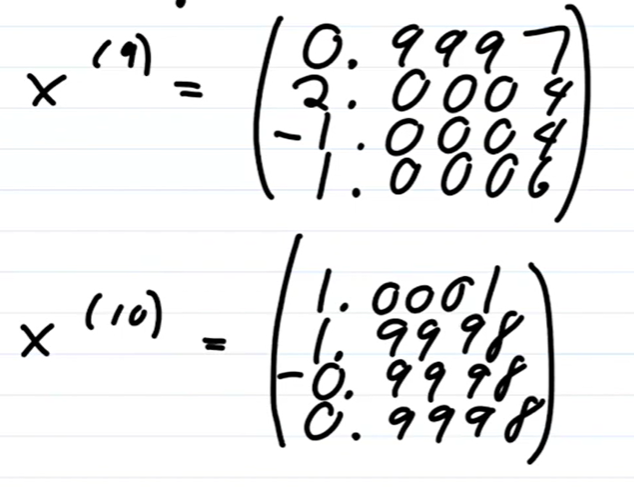 x^(9) = (0.9997
2.0004
-1.0004
1.0006)
x^(10) = (1.0001
1.9998
-0.9998
0.9998)